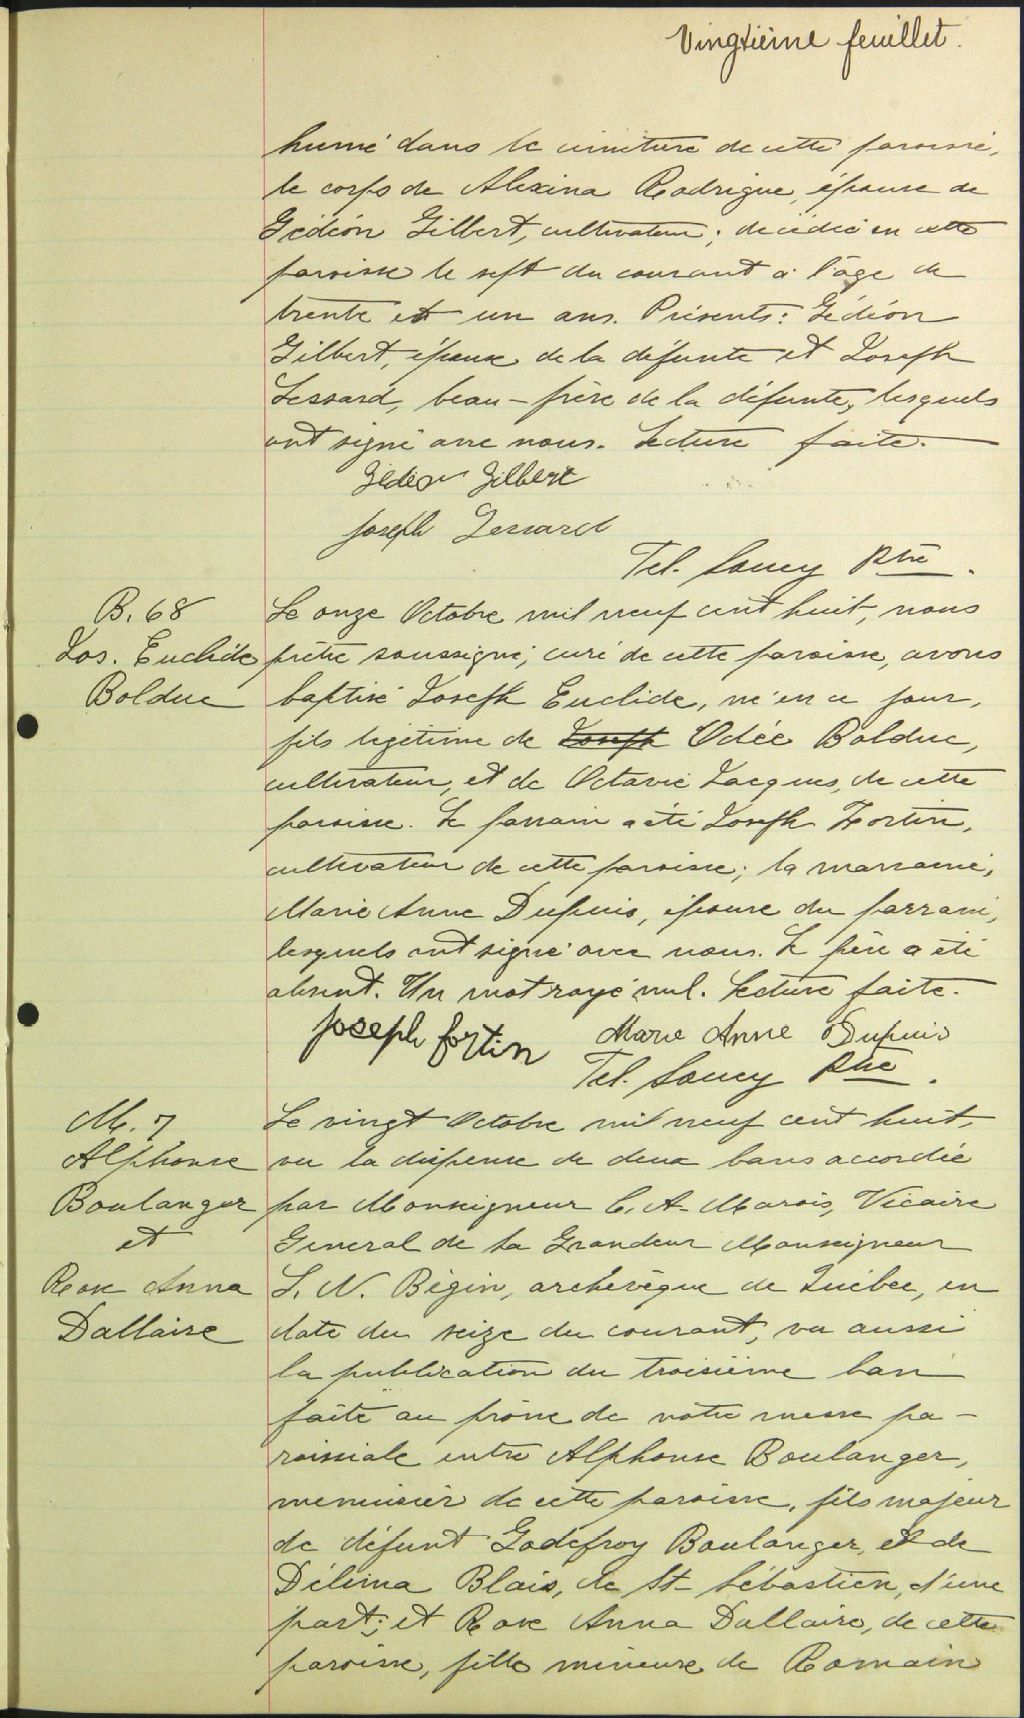 Vingtième feuillet.
humé dans le cimetière de cette paroisse,
le corps de Alexina Rodrigue, épouse de
Gédéon Gilbert, cultivateur; décédée en cette
paroisse le sept du courant à l'âge de
trente et un ans. Présents: Gédéon
Gilbert, époux de la défunte et Joseph
Lessard, beau-frère de la défunte, lesquels
ont signé avec nous. Lecture faite.
Gédéon Gilbert
Joseph Lessard
Tel. Soucy Ptre.
B. 68
Jos. Euclide
Bolduc
Le onze Octobre mil neuf cent huit, nous
prêtre soussigné, curé de cette paroisse, avons
baptisé Joseph Euclide, né en ce jour,
fils légitime de Joseph Odée Bolduc,
cultivateur, et de Octavie Jacques, de cette
paroisse. Le parrain a été Joseph Fortin,
cultivateur de cette paroisse; la marraine,
Marie Anne Dupuis, épouse du parrain,
lesquels ont signé avec nous. Le père a été
absent. Un mot rayé nul. Lecture faite.
Joseph Fortin Marie Anne Dupuis
Tel. Soucy Ptre.
M. 7
Alphonse
Boulanger
et
Rose Anna
Dallaire
Le vingt Octobre mil neuf cent huit,
vu la dispense de deux bans accordée
par Monseigneur C. A. Marois, Vicaire
General de Sa Grandeur Monseigneur
L. N. Bégin, archevêque de Québec, en
date du seize du courant, vu aussi
la publication du troisième ban
faite au prône de notre messe pa-
roissiale entre Alphonse Boulanger,
menuisier de cette paroisse, fils majeur
de défunt Godefroy Boulanger, et de
Délima Blais, de St-Sébastien, d'une
part; et Rose Anna Dallaire, de cette
paroisse, fille mineure de Romain